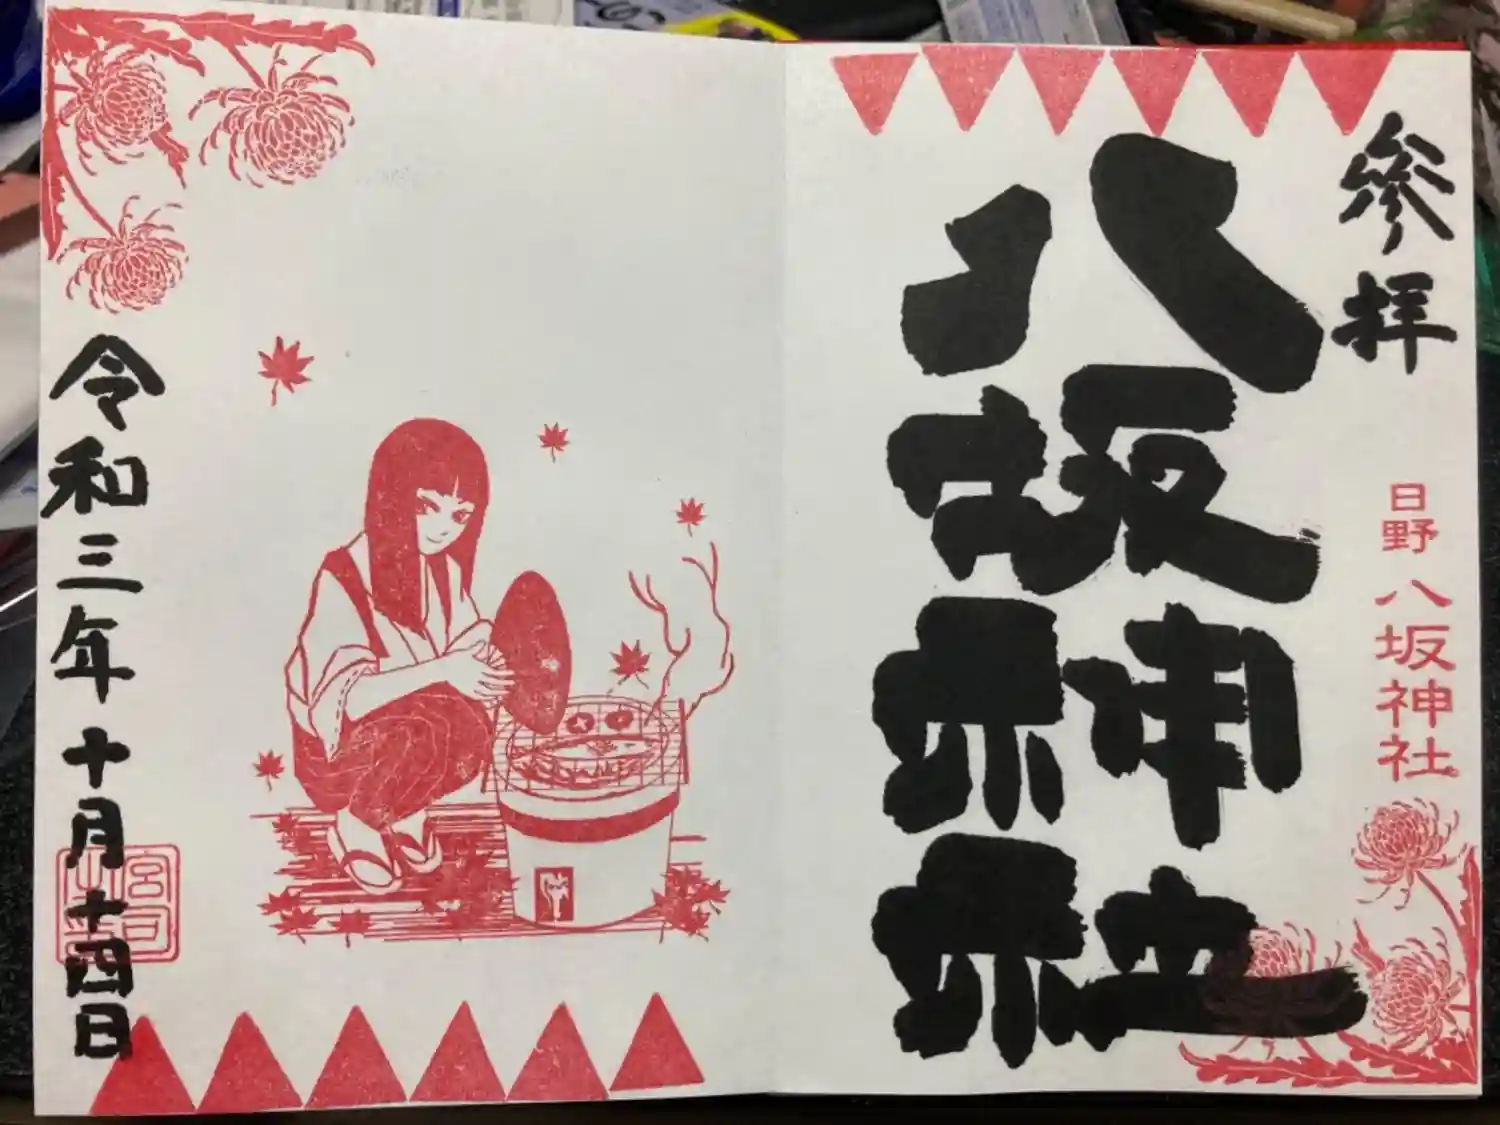 参拝
日野 八坂神社
八坂神社
令和三年十月十四日
宮司